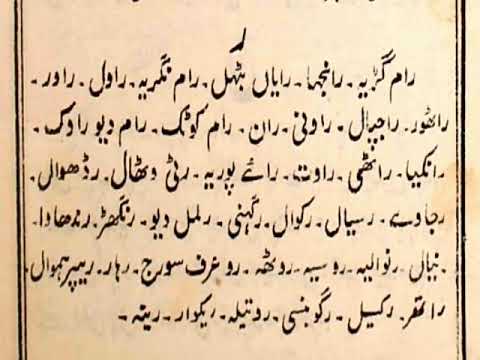 ر
رام گڑیہ ۔ رانجھا ۔ رایاں بٹھل ۔ رام نگریہ ۔ راول ۔ راور ۔
راٹھور ۔ راجپال ۔ راونی ۔ ران ۔ رام کوٹک ۔ رام دیو راوک ۔
رانکیا ۔ راٹھی ۔ راوت ۔ رائے پوریہ ۔ رٹی وٹھال ۔ رڈھوال ۔
رجاوے ۔ رسیال ۔ رکوال ۔ رگہنی ۔ رلمل دیو ۔ رنگھڑ ۔ رندھاوا ۔
رنوالیہ ۔ روسیہ ۔ روٹھہ ۔ رو عرف سورج ۔ رہار ۔
راتھر ۔ رکسیل ۔ رگوبنسی ۔ روتیلہ ۔ ریکوار ۔ ریتہ ۔